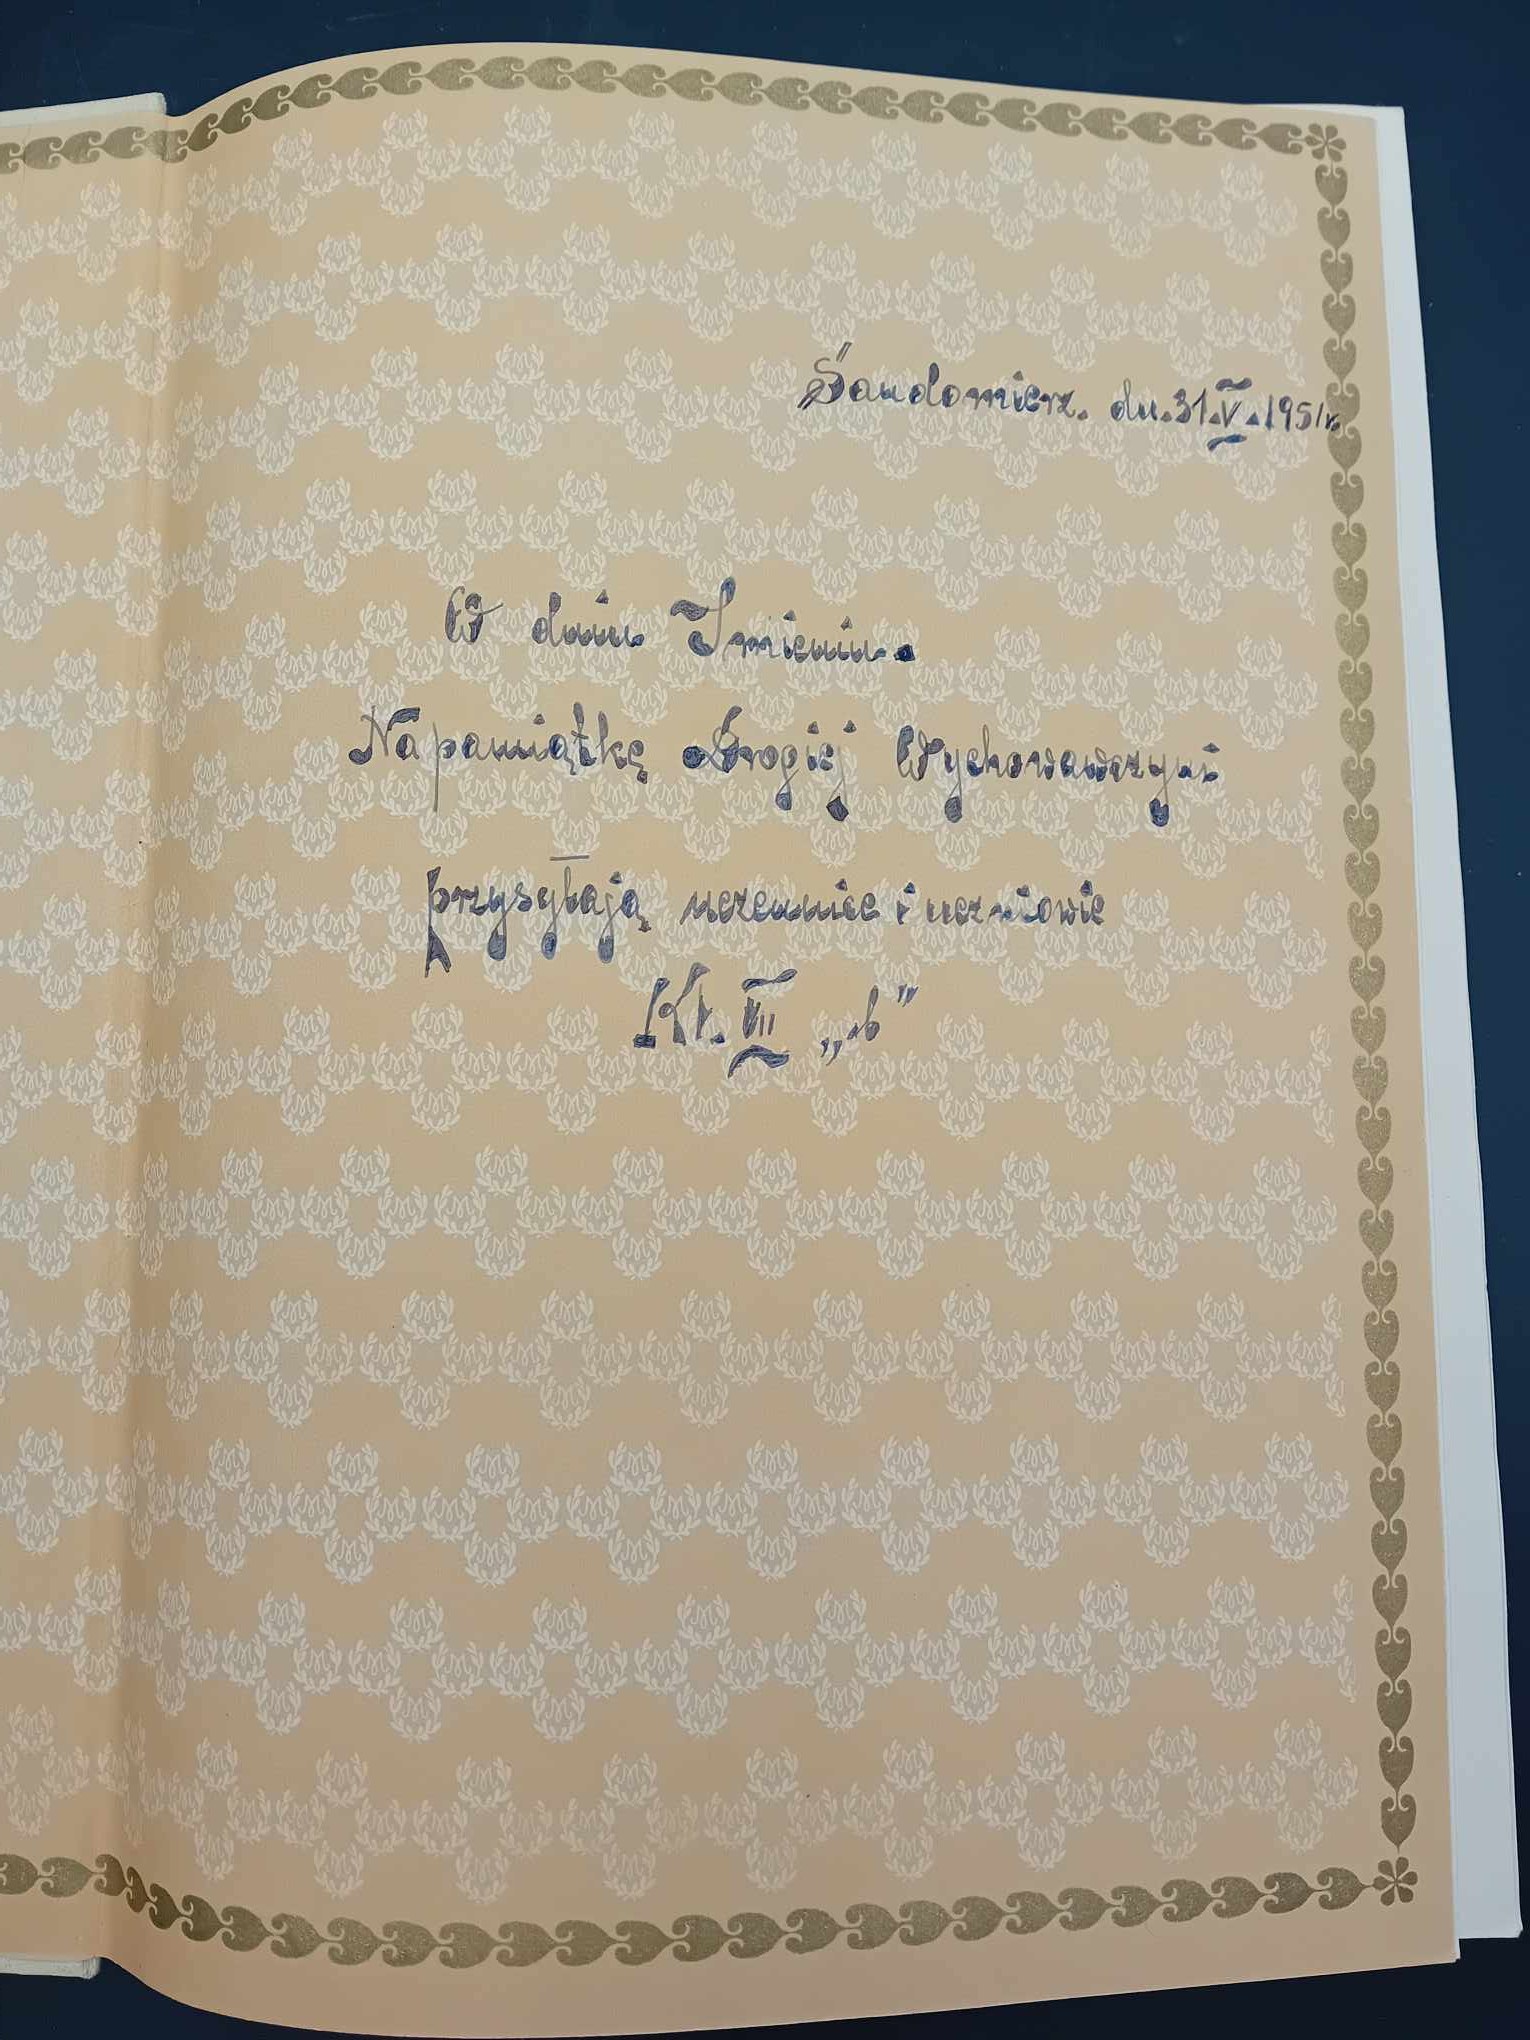 Sandomierz. dn. 31.V.1951r.
W dniu Imienin.
Na pamiątkę Drogiej Wychowawczyni
przysyłają uczennice i uczniowie
Kł. VII „b”